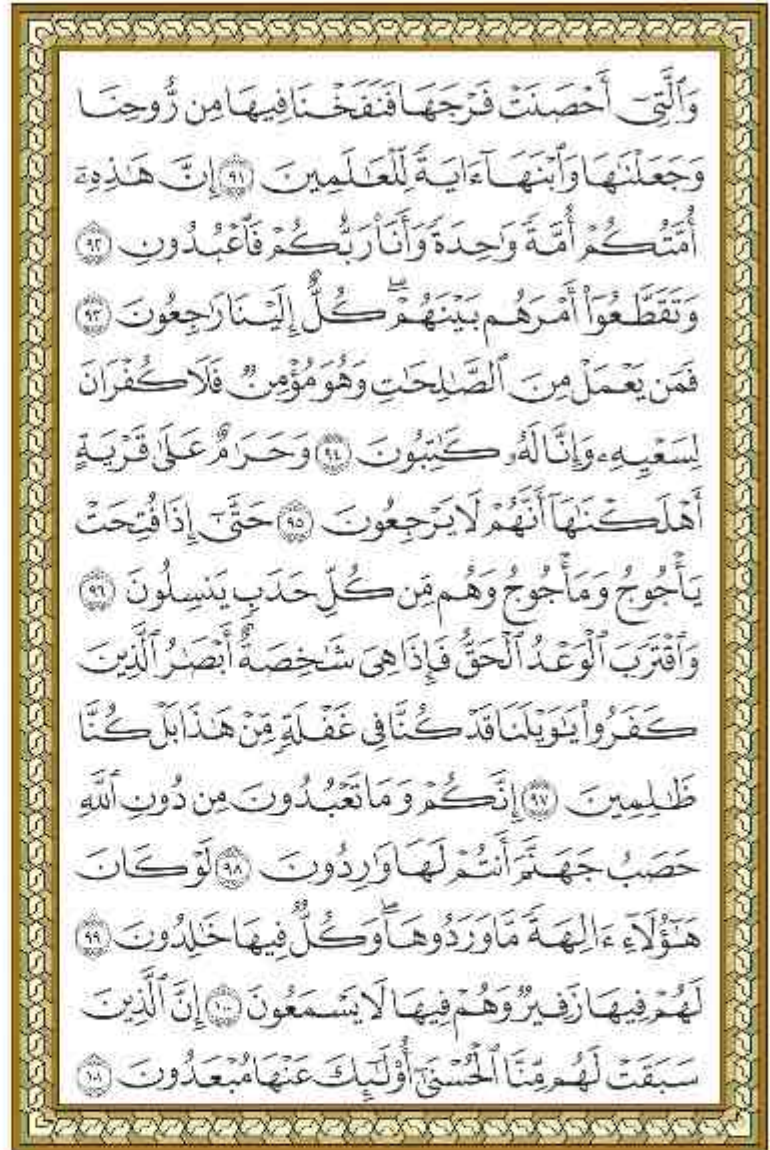 وَٱلَّتِىٓ أَحْصَنَتْ فَرْجَهَا فَنَفَخْنَا فِيهَا مِن رُّوحِنَا
وَجَعَلْنَٰهَا وَٱبْنَهَآ ءَايَةً لِّلْعَٰلَمِينَ ٩١ إِنَّ هَٰذِهِۦٓ
أُمَّتُكُمْ أُمَّةً وَٰحِدَةً وَأَنَا۠ رَبُّكُمْ فَٱعْبُدُونِ ٩٢
وَتَقَطَّعُوٓا۟ أَمْرَهُم بَيْنَهُمْ ۖ كُلٌّ إِلَيْنَا رَٰجِعُونَ ٩٣
فَمَن يَعْمَلْ مِنَ ٱلصَّٰلِحَٰتِ وَهُوَ مُؤْمِنٌ فَلَا كُفْرَانَ
لِسَعْيِهِۦ وَإِنَّا لَهُۥ كَٰتِبُونَ ٩٤ وَحَرَٰمٌ عَلَىٰ قَرْيَةٍ
أَهْلَكْنَٰهَآ أَنَّهُمْ لَا يَرْجِعُونَ ٩٥ حَتَّىٰٓ إِذَا فُتِحَتْ
يَأْجُوجُ وَمَأْجُوجُ وَهُم مِّن كُلِّ حَدَبٍ يَنسِلُونَ ٩٦
وَٱقْتَرَبَ ٱلْوَعْدُ ٱلْحَقُّ فَإِذَا هِىَ شَٰخِصَةٌ أَبْصَٰرُ ٱلَّذِينَ
كَفَرُوا۟ يَٰوَيْلَنَا قَدْ كُنَّا فِى غَفْلَةٍ مِّنْ هَٰذَا بَلْ كُنَّا
ظَٰلِمِينَ ٩٧ إِنَّكُمْ وَمَا تَعْبُدُونَ مِن دُونِ ٱللَّهِ
حَصَبُ جَهَنَّمَ أَنتُمْ لَهَا وَٰرِدُونَ ٩٨ لَوْ كَانَ
هَٰٓؤُلَآءِ ءَالِهَةً مَّا وَرَدُوهَا ۖ وَكُلٌّ فِيهَا خَٰلِدُونَ ٩٩
لَهُمْ فِيهَا زَفِيرٌ وَهُمْ فِيهَا لَا يَسْمَعُونَ ١٠٠ إِنَّ ٱلَّذِينَ
سَبَقَتْ لَهُم مِّنَّا ٱلْحُسْنَىٰٓ أُو۟لَٰٓئِكَ عَنْهَا مُبْعَدُونَ ١٠١